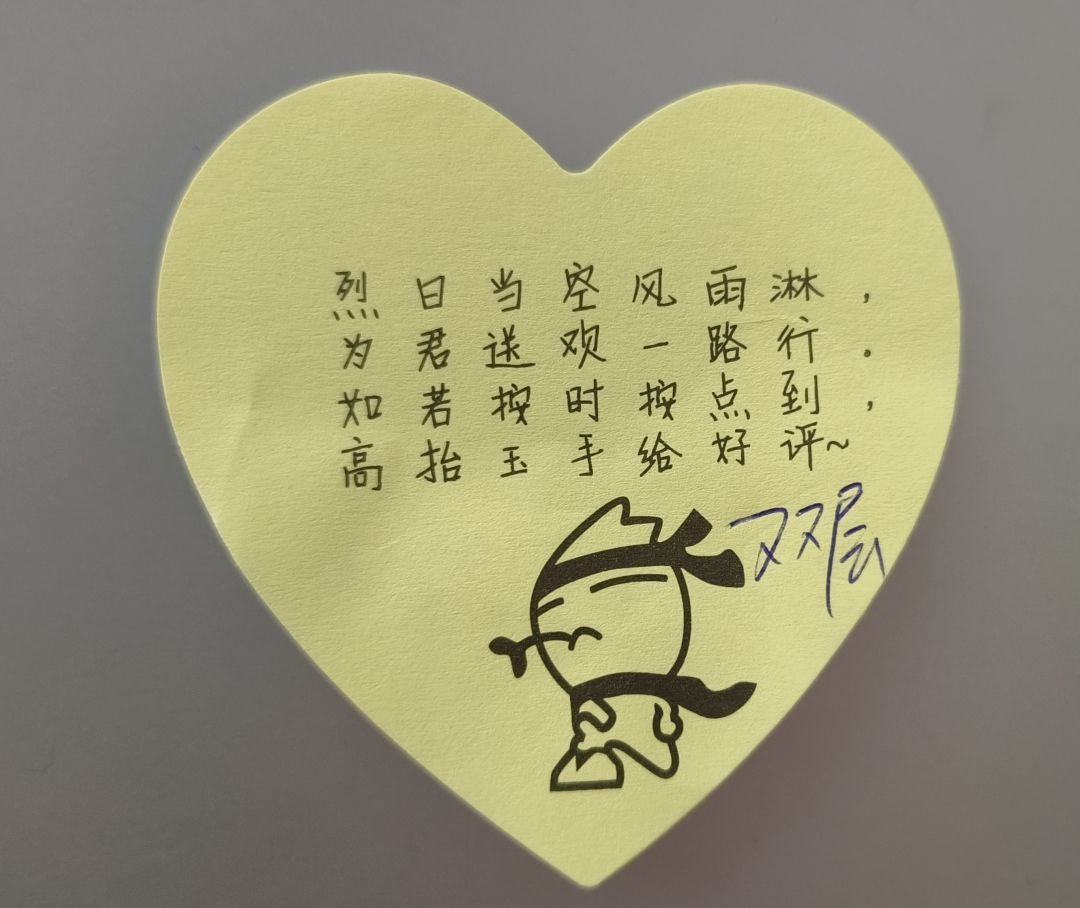 烈日当空风雨淋，
为君送欢一路行。
如若按时按点到，
高抬玉手给好评~
双层